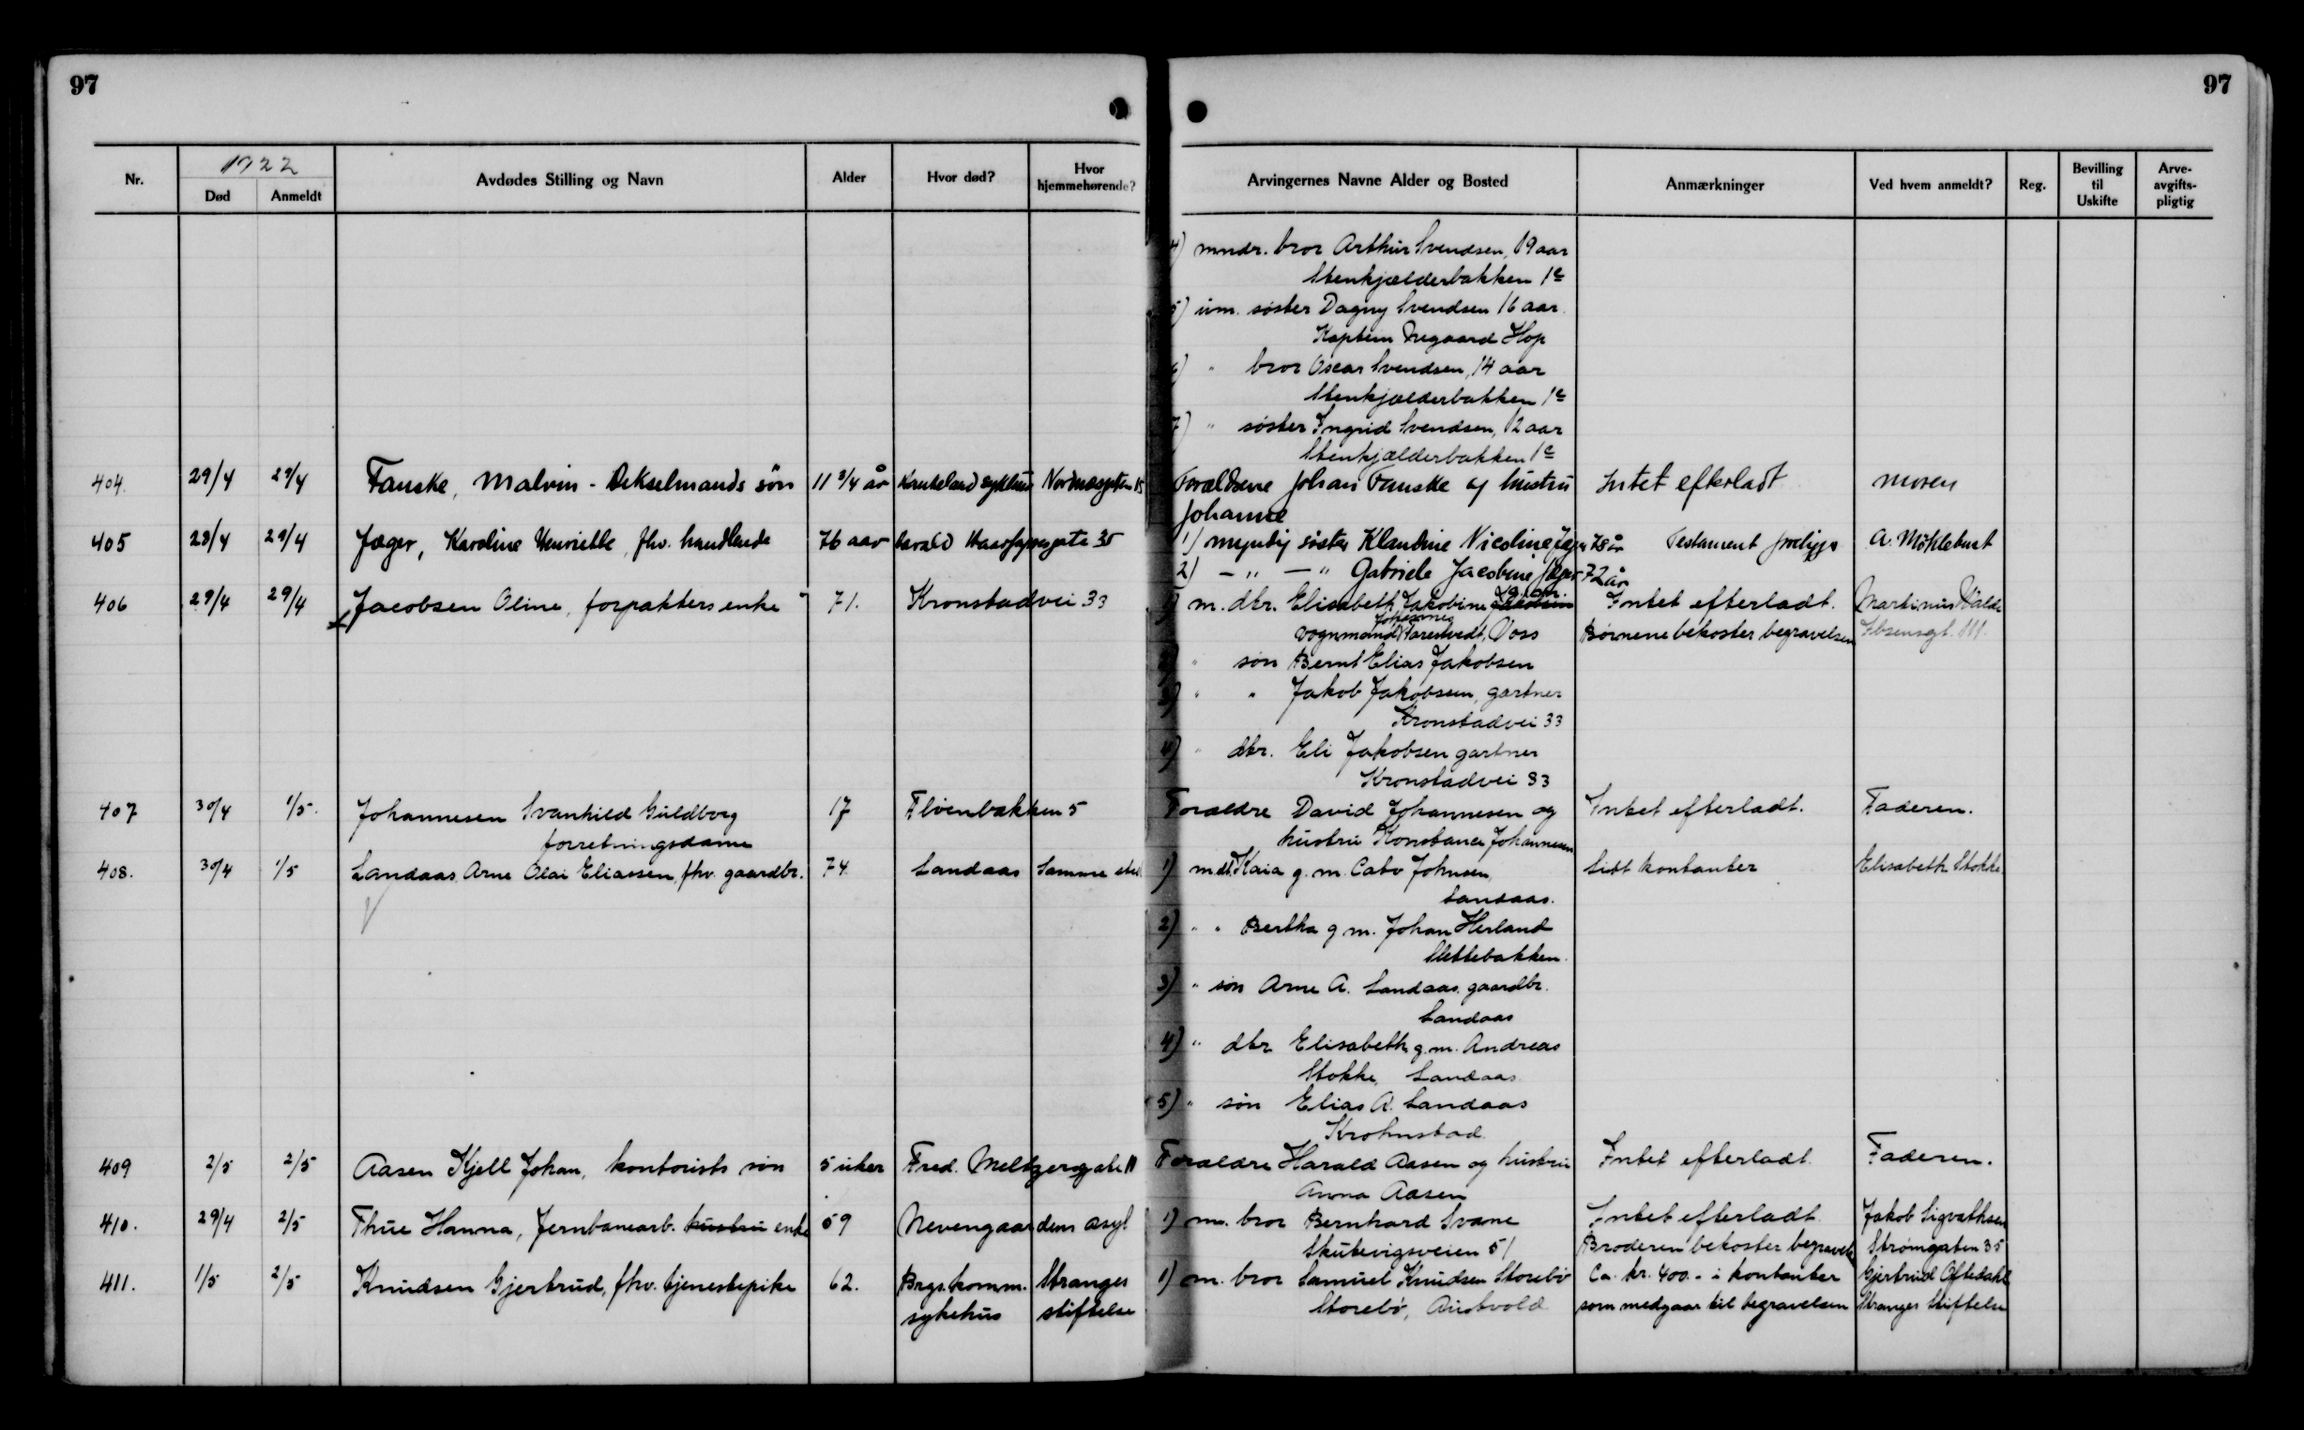 97
97
Nr. 1922 Død Anmeldt Avdødes Stilling og Navn Alder Hvor død? Hvor hjemmehørende? Arvingernes Navne Alder og Bosted Anmærkninger Ved hvem anmeldt? Reg. Bevilling til Uskifte Arve-avgifts-pligtig
4) mndr. bror Arthur Svendsen, 19 aar
Stenkjælderbakken 1c
5) um. søster Dagny Svendsen 16 aar.
Kaptein Hop
6) " bror Oscar Svendsen, 14 aar
Stenkjælderbakken 1c
7) " søster Ingrid Svendsen, 12 aar
Stenkjælderbakken 1c
404. 29/4 29/4 Fanske, Malvin - Dekselmands søn 11 3/4 år sykehus 15 Forældrene Johan Fanske og hustru Intet efterladt moren
Johanne
405 28/4 29/4 Jæger, Karoline Henriette, fhv. handlende 76 aar Harald Haarfagersgate 35 1) myndig søster Klaudine Nicoline Jæger 78 år Testament foreligger A. Myklebust
2) - " - " Gabriele Jacobine Jæger 72 år
406 29/4 29/4 Jacobsen Oline, forpakters enke 71. Kronstadvei 33 1) m. dtr. Elisabeth Jakobine Jakobsen g. m. Intet efterladt. Martinus
vognmand Johannes Voss Børnene bekoster begravelsen Ibsensgt. 111.
2) " søn Bernt Elias Jakobsen
3) " " Jakob Jakobsen, gartner
Kronstadvei 33
4) " dtr. Eli Jakobsen gartner
Kronstadvei 33
407 30/4 1/5. Johannesen Svanhild Guldborg 17 Fløenbakken 5 Forældre David Johannesen og Intet efterladt. Faderen.
forretningsdame hustru Konstance Johannesen
408. 30/4 1/5 Landaas, Arne Olai Eliassen, fhv. gaardbr. 74 Landaas Samme sted 1) m. dt. Kaia g. m. Cato Johnsen, Litt kontanter Elisabeth Stokke
Landaas.
2) " " Bertha g. m. Johan Herland
Slettebakken.
3) " søn Arne A. Landaas, gaardbr.
Landaas
4) " dtr Elisabeth g. m. Andreas
Stokke, Landaas
5) " søn Elias A. Landaas
Krohnstad.
409 2/5 2/5 Aasen Kjell Johan, kontorists søn 5 uker Fred. Meltzersgate 11 Forældre Harald Aasen og hustru Intet efterladt. Faderen.
Anna Aasen
410. 29/4 2/5 Thue Hanna, Jernbanearb. hustru enke 59 Nevengaardens asyl 1) m. bror Bernhard Svane Intet efterladt Jakob Sigvathsen
Skutevigsveien 51 Broderen bekoster begravels Strømgaten 35
411. 1/5 2/5 Knudsen Gjertrud, fhv. tjenestepike 62. Brgs. komm. Stranges 1) m. bror Samuel Knudsen Storebø Ca. kr. 400.- i kontanter Gjertrud Aftedahl
sykehus stiftelse Storebø, Austvold som medgaar til begravelsen Stranges Stiftelse